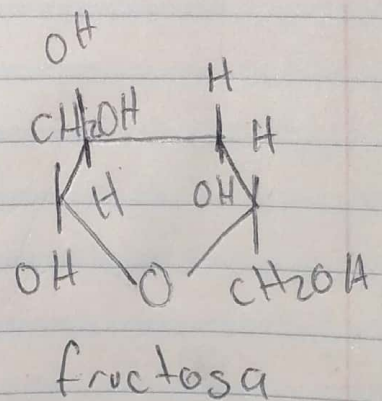 OH
H
CH₂OH H
H OH
OH O CH₂OH
fructosa